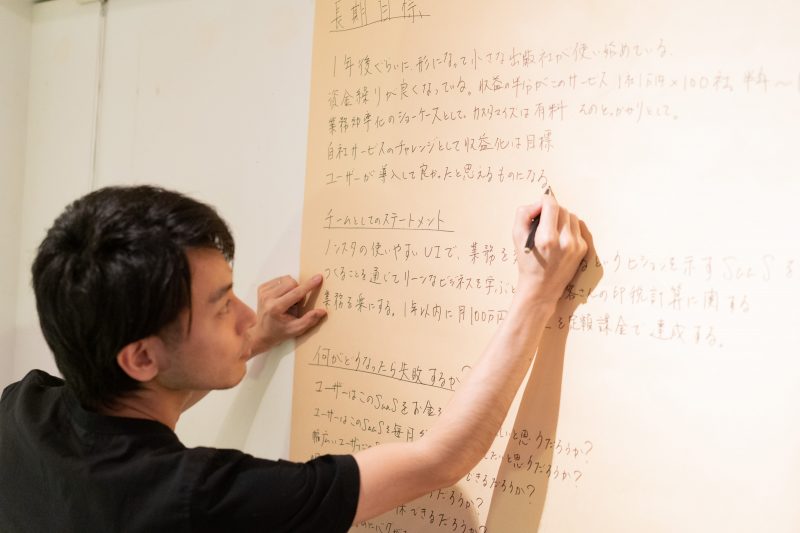 長期目標、
1年後ぐらいに、形になって小さな出版社が使い始めている
資金繰りが良くなっている。収益の半分がこのサービス 1社1万円×100社 半年〜1
業務効率化のショーケースとして。カスタマイズは有料 とっかかりとして。
自社サービスのチャレンジとして収益化は目標
ユーザーが導入して良かったと思えるものになる
チームとしてのステートメント
ノンスタの使いやすいUIで、業務を るというビジョンを示すSaaSを
つくることを通じてリーンなビジネスを学ぶと 客さんの印税計算に関する
業務を楽にする。1年以内に月100万円 を定額課金で達成する。
何がどうなったら失敗するか?
ユーザーはこのSaaSをお金を いと思うだろうか?
ユーザーはこのSaaSを毎月 たいと思うだろうか?
幅広いユーザーに できるだろうか?
だろうか?
できるだろうか?